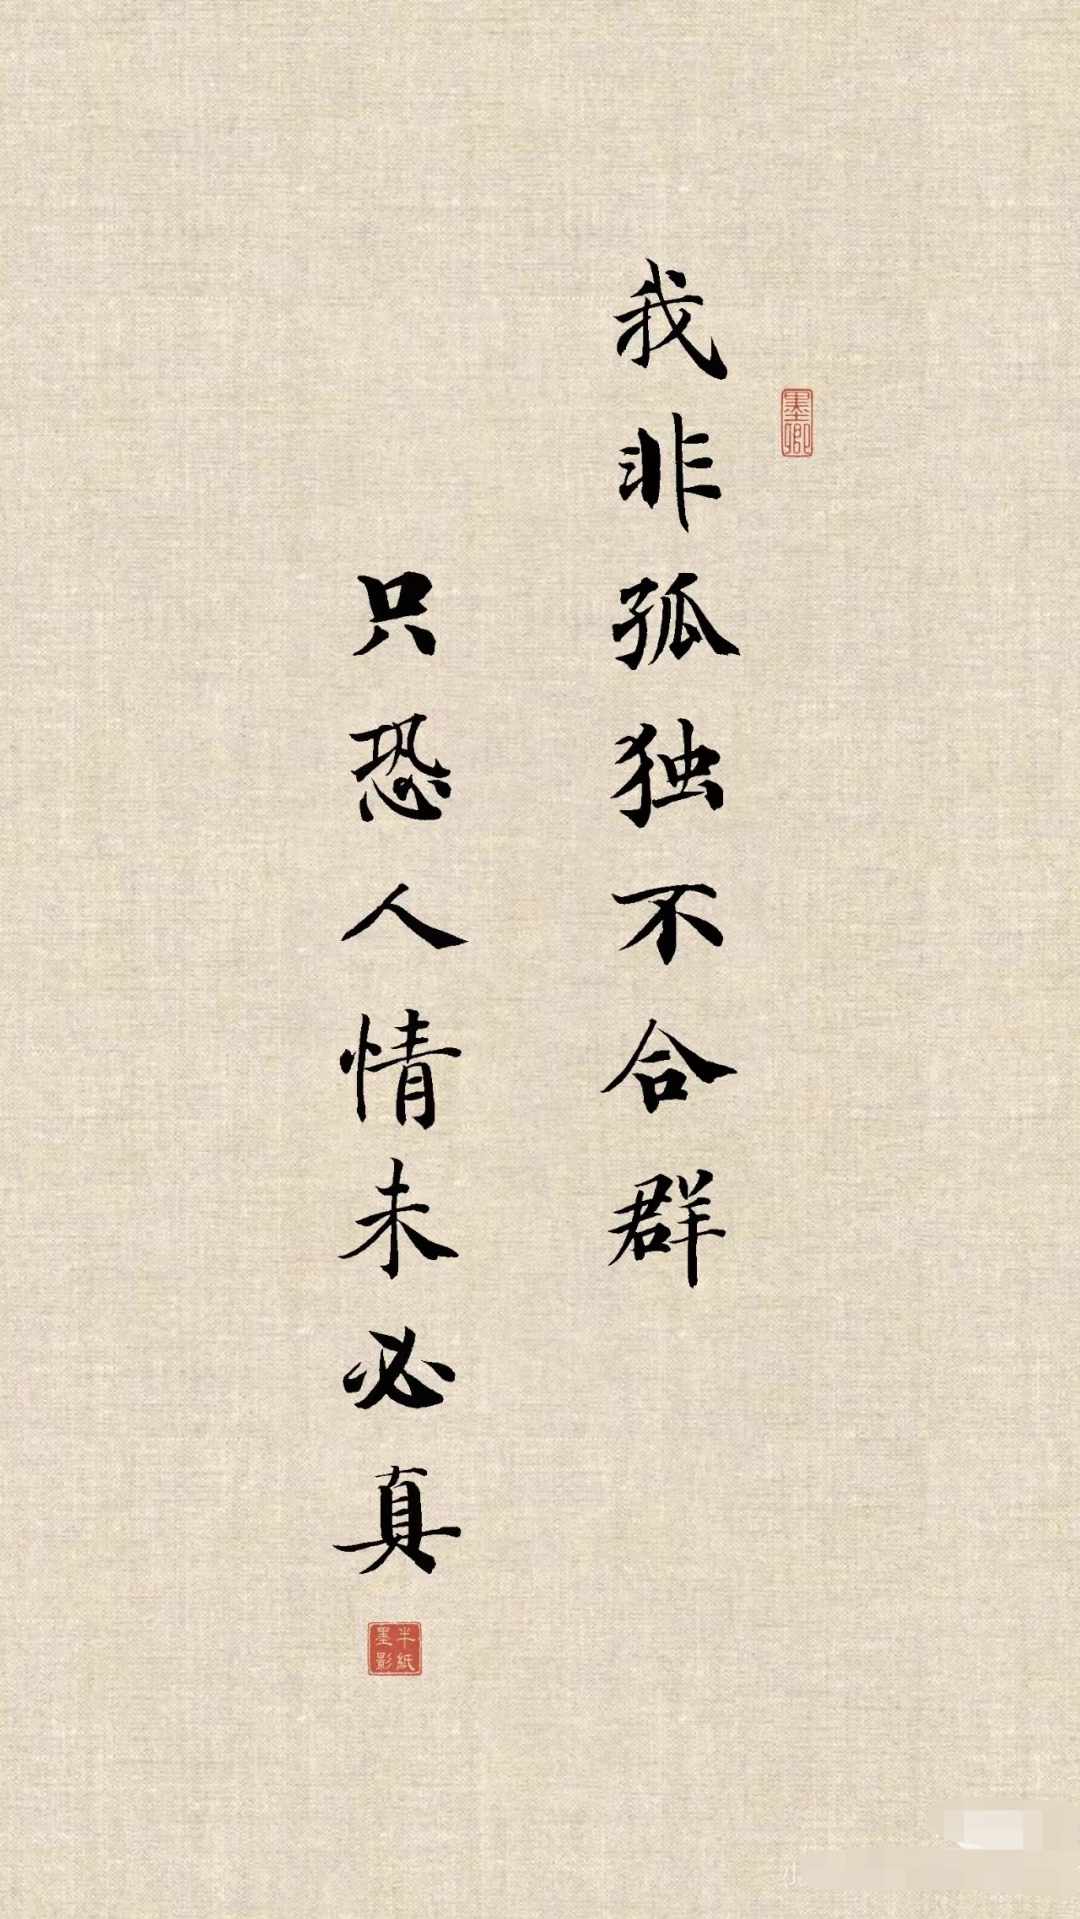 我非孤独不合群
只恐人情未必真
墨卿
半紙
墨影
小